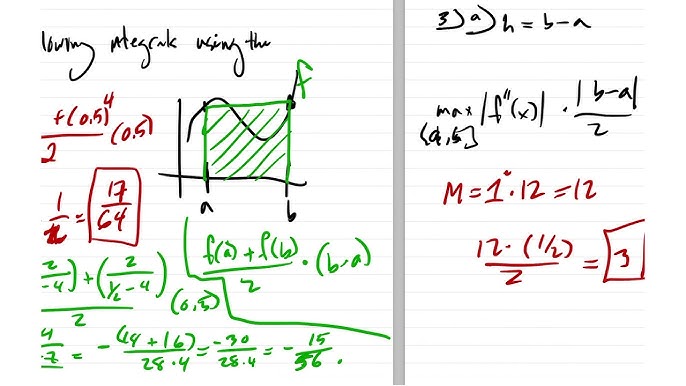 lowing integrals using the
f
+(0.5)^4
2
(0.5)
1 = 17/64
a
b
f(a) + f(b)
2
· (b-a)
2/-4) + (2/(1/2 - 4))
2
(0,5)
4/·7 = -(14+16)/28·4 = -30/28·4 = -15/56 .
3) a) h = b-a
max |f''(x)| · |b-a|/2
[a,b]
M = 1 · 12 = 12
12 · (1/2)
2
= 3